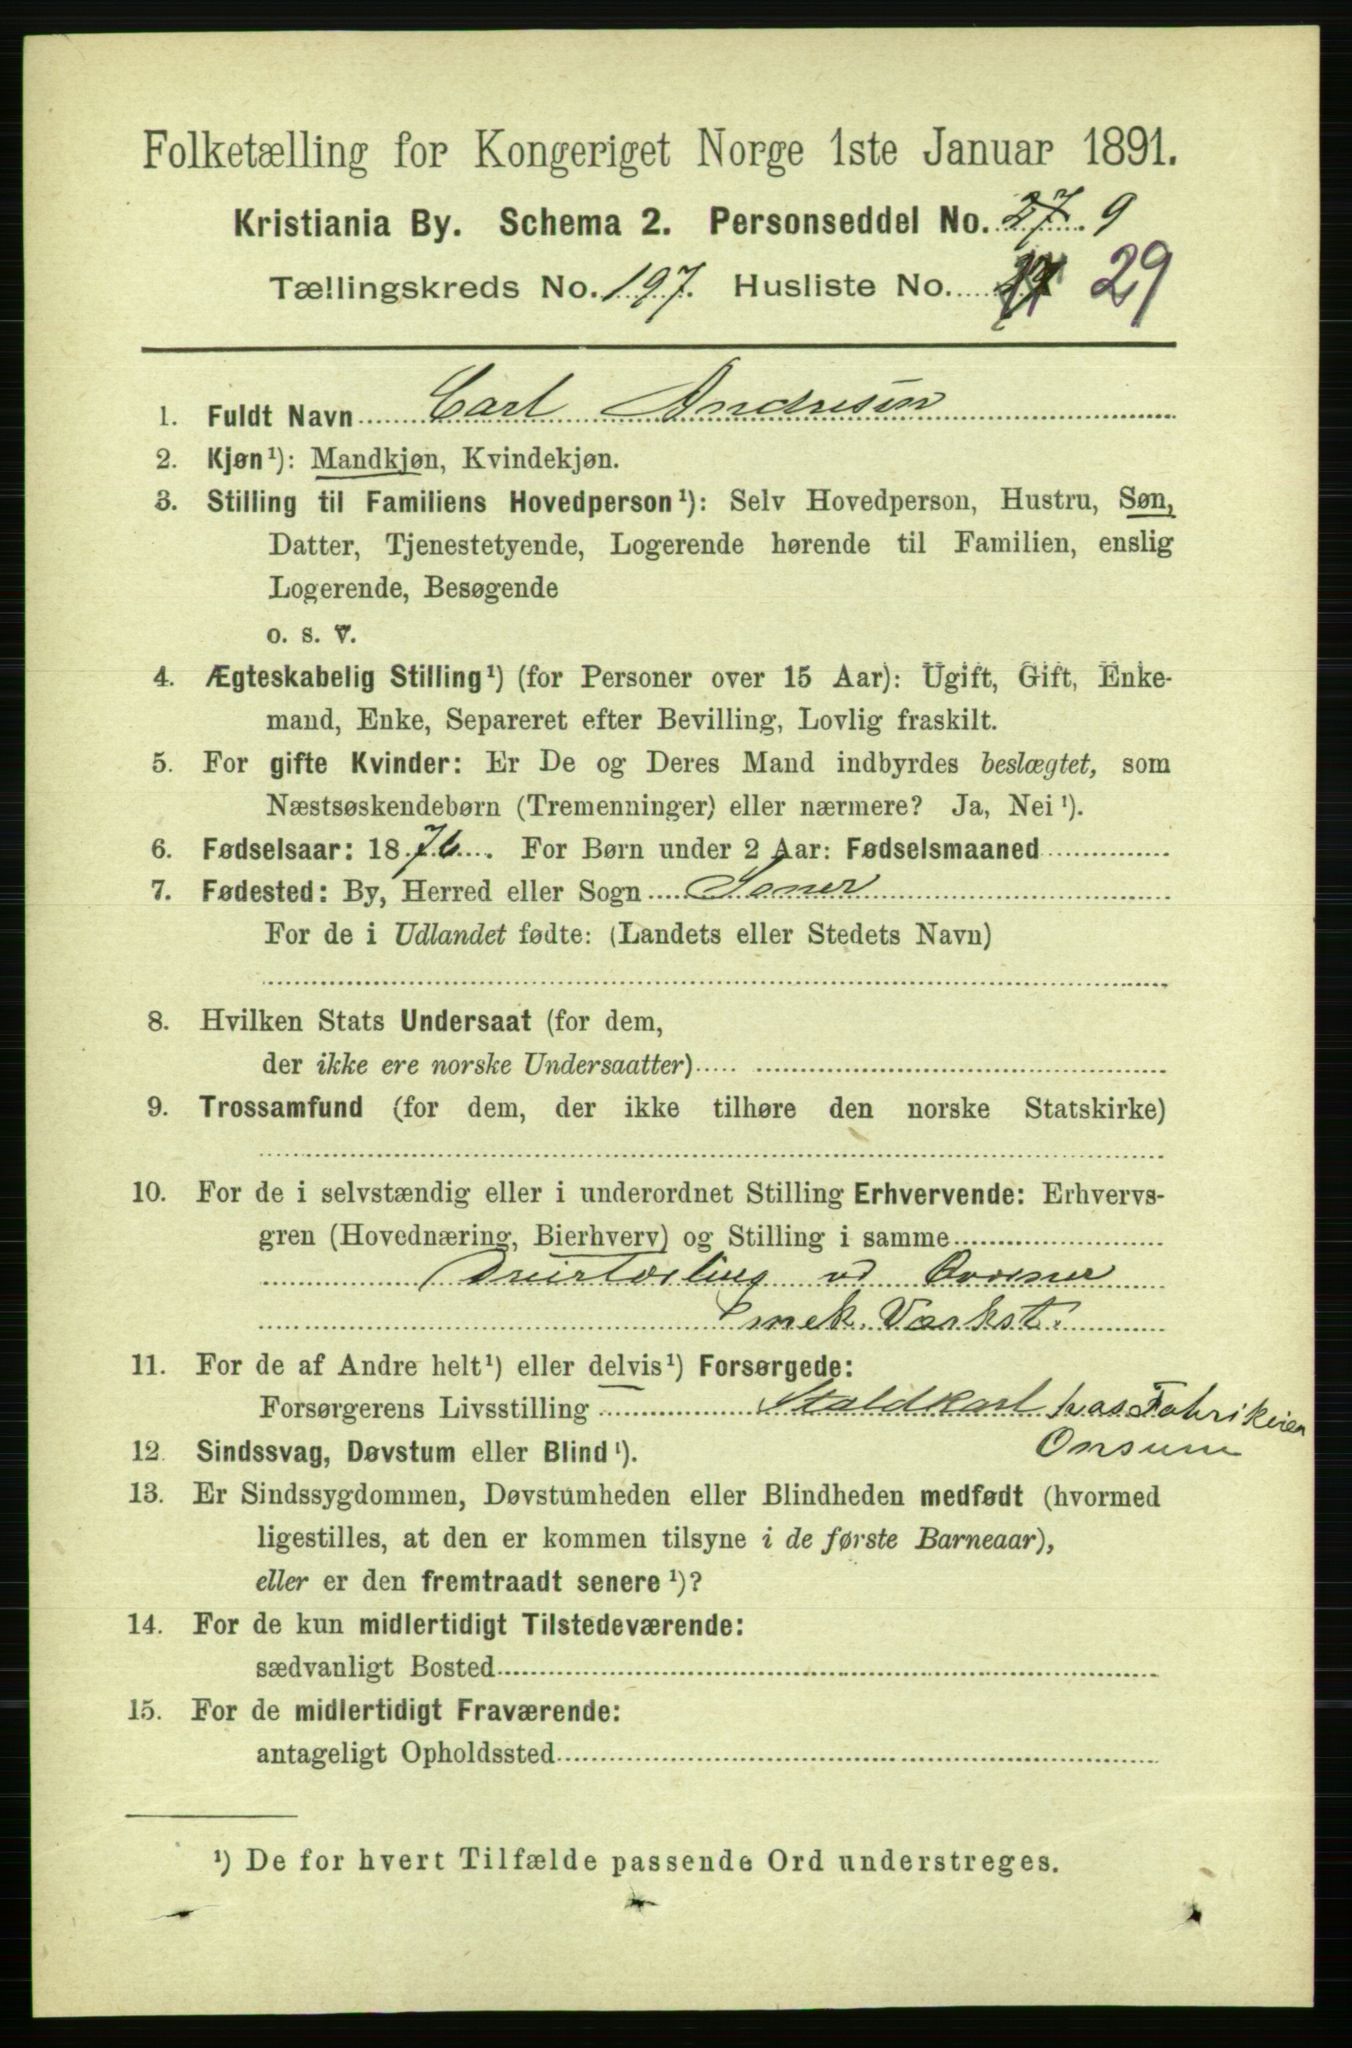 Folketælling for Kongeriget Norge 1ste Januar 1891.
Kristiania By. Schema 2. Personseddel No. 27. 9
Tællingskreds No. 197. Husliste No. 29
1. Fuldt Navn Carl Andresen
2. Kjøn¹): Mandkjøn, Kvindekjøn.
3. Stilling til Familiens Hovedperson¹): Selv Hovedperson, Hustru, Søn,
Datter, Tjenestetyende, Logerende hørende til Familien, enslig
Logerende, Besøgende
o. s. v.
4. Ægteskabelig Stilling¹) (for Personer over 15 Aar): Ugift, Gift, Enke-
mand, Enke, Separeret efter Bevilling, Lovlig fraskilt.
5. For gifte Kvinder: Er De og Deres Mand indbyrdes beslægtet, som
Næstsøskendebørn (Tremenninger) eller nærmere? Ja, Nei¹).
6. Fødselsaar: 1876. For Børn under 2 Aar: Fødselsmaaned
7. Fødested: By, Herred eller Sogn Soner
For de i Udlandet fødte: (Landets eller Stedets Navn)
8. Hvilken Stats Undersaat (for dem,
der ikke ere norske Undersaatter)
9. Trossamfund (for dem, der ikke tilhøre den norske Statskirke)
10. For de i selvstændig eller i underordnet Stilling Erhvervende: Erhvervs-
gren (Hovednæring, Bierhverv) og Stilling i samme
mek. Værkst.
11. For de af Andre helt¹) eller delvis¹) Forsørgede:
Forsørgerens Livsstilling Staldkarl hos Fabrikeier
Onsum
12. Sindssvag, Døvstum eller Blind¹).
13. Er Sindssygdommen, Døvstumheden eller Blindheden medfødt (hvormed
ligestilles, at den er kommen tilsyne i de første Barneaar),
eller er den fremtraadt senere¹)?
14. For de kun midlertidigt Tilstedeværende:
sædvanligt Bosted
15. For de midlertidigt Fraværende:
antageligt Opholdssted
¹) De for hvert Tilfælde passende Ord understreges.